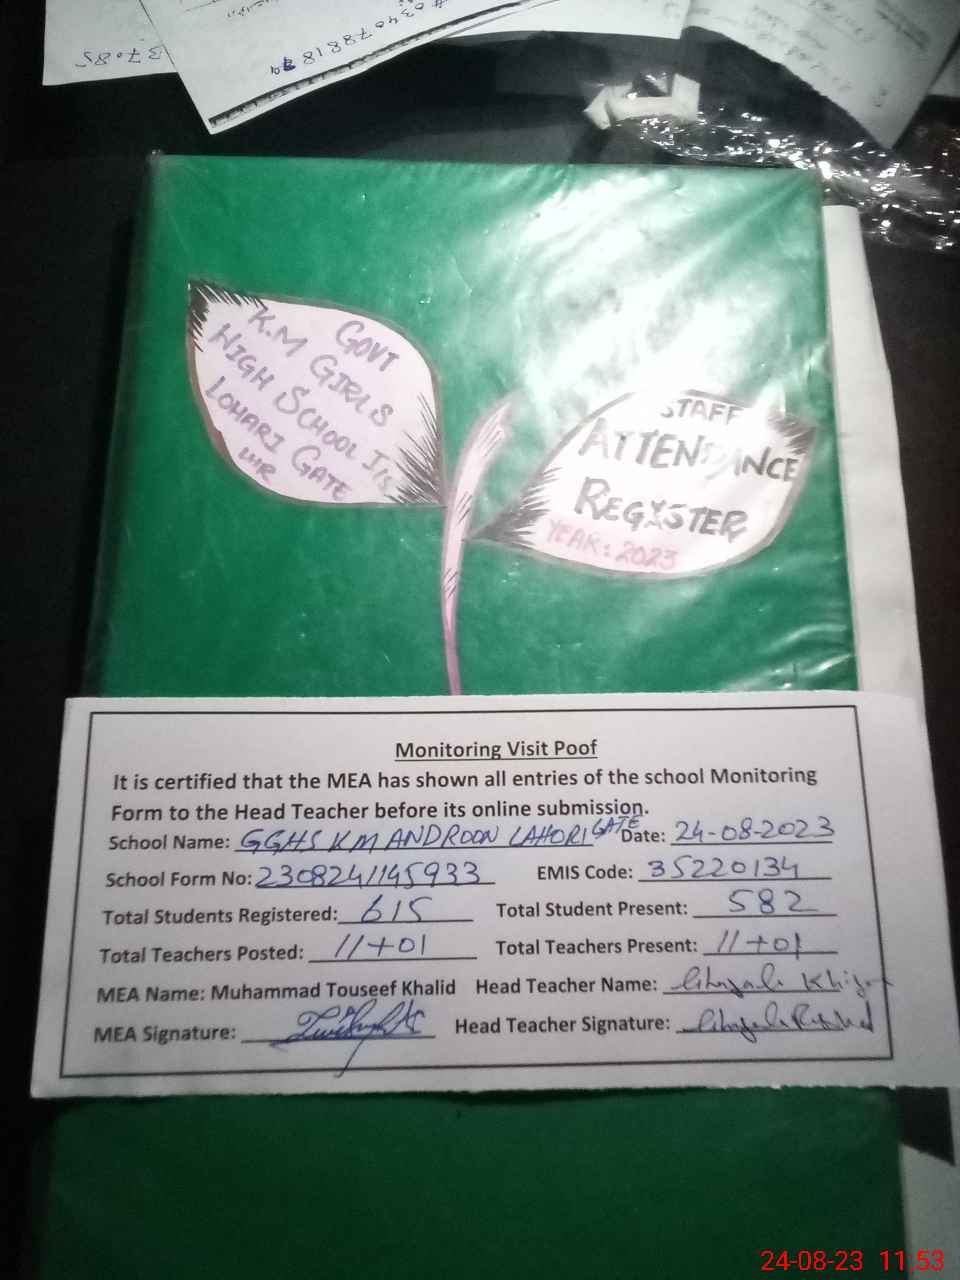 37085
#03407881879
GOVT
K.M GIRLS
HIGH SCHOOL I/S
LOHARI GATE
LHR
STAFF
ATTENDANCE
REGISTER
YEAR: 2023
Monitoring Visit Poof
It is certified that the MEA has shown all entries of the school Monitoring
Form to the Head Teacher before its online submission.
School Name: GGHS KM ANDROON LAHORI GATE Date: 24-08-2023
School Form No: 2308241145933 EMIS Code: 35220134
Total Students Registered: 615 Total Student Present: 582
Total Teachers Posted: 11+01 Total Teachers Present: 11+01
MEA Name: Muhammad Touseef Khalid Head Teacher Name:
MEA Signature: Head Teacher Signature:
24-08-23 11:53